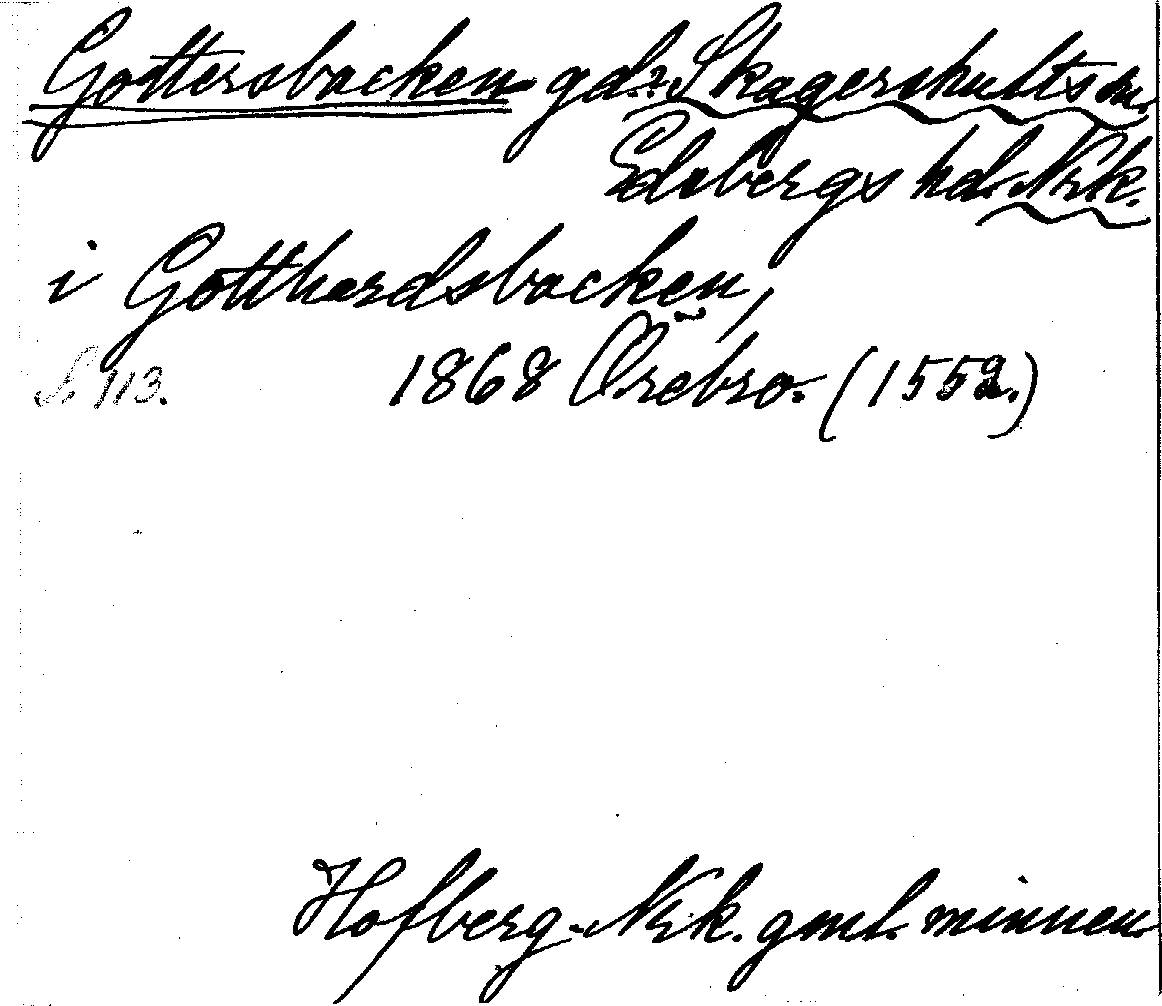 Gottersbacken gd? Skagershults sn.
Edsbergs hd. Nrk.
i Gotthardsbacken,
S. 113. 1868 Örebro. (1552.)
Hofberg - Nrk. gml. minnen